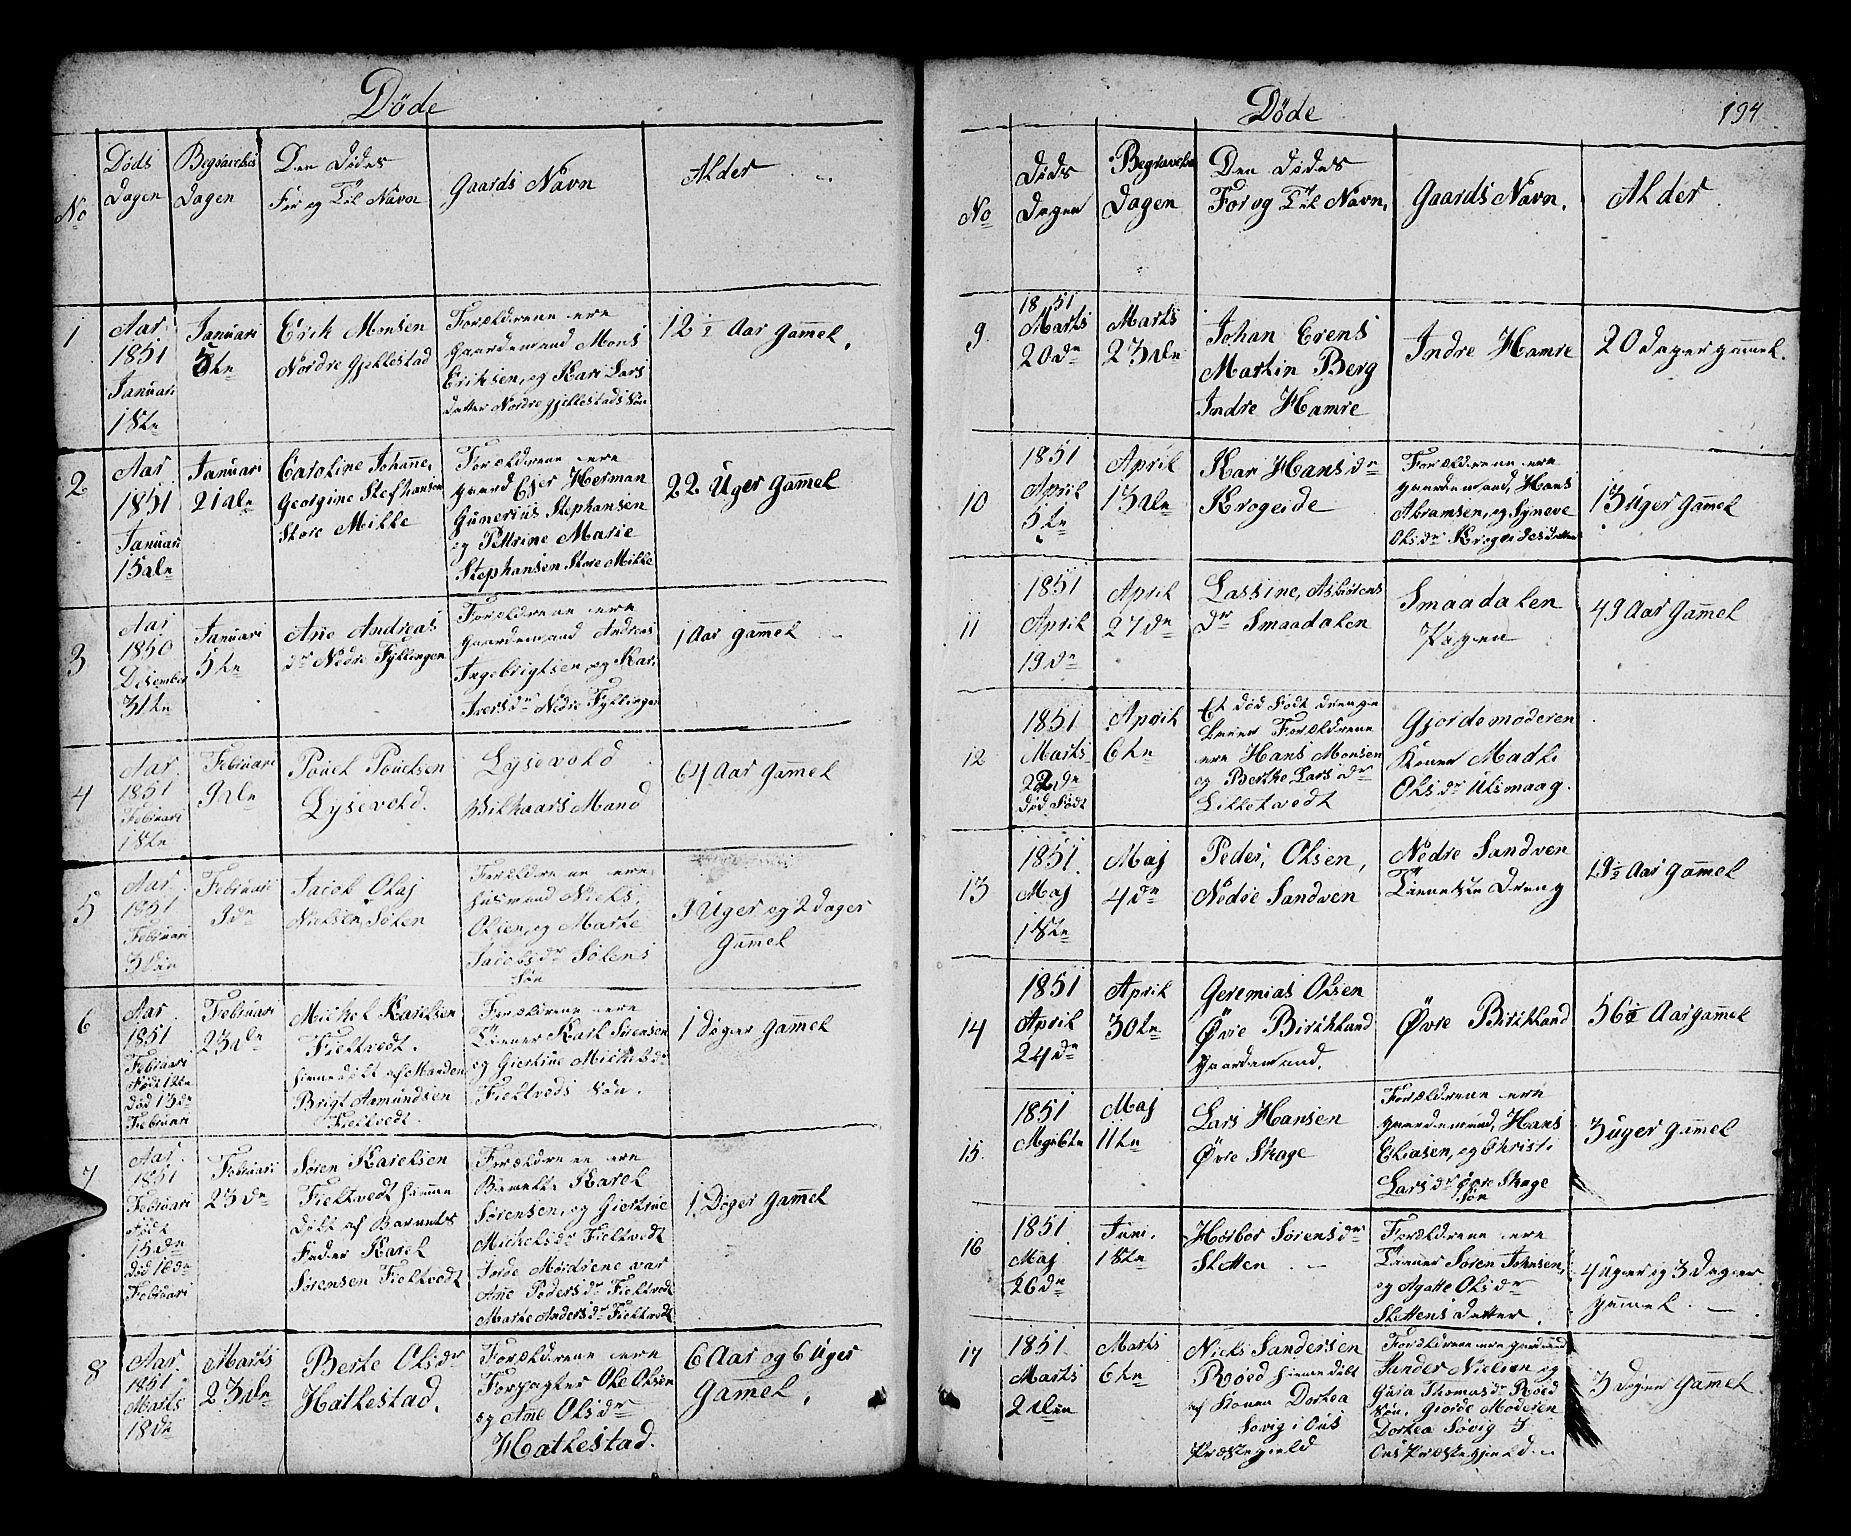 Døde
No
Døds Dagen
Begravelses Dagen
Den Dødes For og Til Navn
Gaards Navn
Alder
1
Aar
1851
Januari
1ste
Januari
5te
Erik Monsen
Nordre Gjellestad
Forældrene ere
Gaardemand Mons
Eriksen, og Kari Lars
datter Nordre Gjellestads Søn
12 1/2 Aar Gamel.
2
Aar
1851
Januari
15de
Januari
21de
Caroline Johanne,
Georgine Stephansen
Store Milke
Forældrene ere
Gaard Ejer Herman
Gunerius Stephansen
og Pettrine Marie
Stephansen Store Milke
22 Uger Gamel
3
Aar
1850
Desember
31te
Januari
5te
Ane Andreas
dr Nedre Fyllingen
Forældrene ere
Gaardemand Andreas
Ingebrigtsen, og Kari
Iversdr Nedre Fyllingen
1 Aar gamel
4
Aar
1851
Februari
1ste
Februari
9de
Pouel Pouelsen
Lysevold.
Lysevold
Vilkaars Mand
64 Aar Gamel
5
Aar
1851
Februari
3die
Februari
9de
Jacob Olaj
Nielsen Sølen
Forældrene ere
Husmand Niels,
Olsen, og Marte
Jacobsdr Sølens
Søn
9 Uger og 2 dager
Gamel
6
Aar
1851
Februari
Født 12te
død 13de
Februari
Februari
23de
Mickel Karelsen
Fieltvedt.
Hiemedøbt af Manden
Brigt Aamundsen
Fieltvedt
Forældrene ere
Tiener Karl Svensen
og Giertine Mickelsdr
Fieltveds Søn.
1 Dager Gamel
7
Aar
1851
Februari
Født
15de
død 16de
Februari
Februari
23de
Søren Karelsen
Fieltvedt Hieme
døbt af Barnets
Fader Karel
Sørensen Fieltvedt
Forældrene ere
Karel
Sørensen, og Giertine
Mickelsdr Fieltvedt
Jorde Mødrene var
Ane Pedersdr Fieltvedt
Marthe Andersdr Fieltvedt
1 Dager Gamel
8
Aar
1851
Marts
18de
Marts
23de
Berte Olsdr
Hatlestad.
Forældrene ere
Forpagter Ole Olsen
og Ane Olsdr
Hatlestad.
6 Aar og 6 Uger
Gamel.
Døde
194
No
Døds Dagen
Begravelses Dagen
Den Dødes For og Til Navn.
Gaards Navn.
Alder
9
1851
Marts
20de
Marts
23de
Johan Erens
Martin Berg
Indre Hamre
Indre Hamre
20 dager gamel.
10
1851
April
5te
April
13de
Kari Hansdr
Krogeide
Forældrene ere
Gaardemand, Hans
Abramsen, og Syneve
Olsdr Krogeides datter
13 Uger Gamel
11
1851
April
19de
April
27de
Lassine, Asbiørens
dr Smaadalen
Smaadalen
Pigen
49 Aar Gamel
12
1851
Marts
22de
død Født
April
6te
Et død Født drenge
Forældrene
ere Hans Monsen
og Berthe Larsdr
Lilletvedt
Gjordemoderen
Konen Marthi
Olsdr Ulsmaag.
13
1851
Maj
1ste
Maj
4de
Peder, Olsen,
Nedre Sandven
Nedre Sandven
Tieneste Dreng
19 1/2 Aar Gamel
14
1851
April
24de
April
30te
Geremias Olsen
Øvre Birikland
Gaardemand.
Øvre Birikland
56 Aar gamel
15.
1851
Maj 6te
Maj
11te
Lars Hansen
Øvre Skage
Forældrene ere
Gaardemand, Hans
Eliasen, og Christi
Larsdr Øvre Skage
Søn
3 uger gamel
16
1851.
Maj
26de
Juni.
1ste
Hørbor Sørensdr
Sletten
Forældrene ere
Tienner Søren Johnsen,
og Agatte Olsdr
Slettens datter.
4 Uger og 3 Dager
gamel.
17
1851.
Marts
2den
Marts
6te
Niels Sandersen
Røed Hiemedøbt
af Konen Dortea
Søvig i Ous
Præstegield
Forældrene ere Gaardmand
Sander Nielsen og
Guria Thomasdr Røed
Søn. Giorde Moderen
Dortea Søvig I
Ous Præstegjeld.
3 Dager Gamel